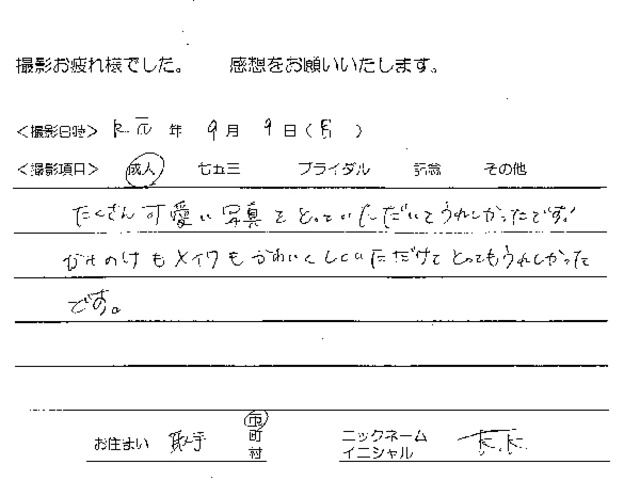 撮影お疲れ様でした。 感想をお願いいたします。
<撮影日時> R元 年 9月 9日(月)
<撮影項目> 成人 七五三 ブライダル 記念 その他
たくさん可愛い写真をとっていただいてうれしかったです!
かみのけもメイクもかわいくしていただけてとってもうれしかった
です。
お住まい 取手 市 町 村 ニックネーム イニシャル K.K.